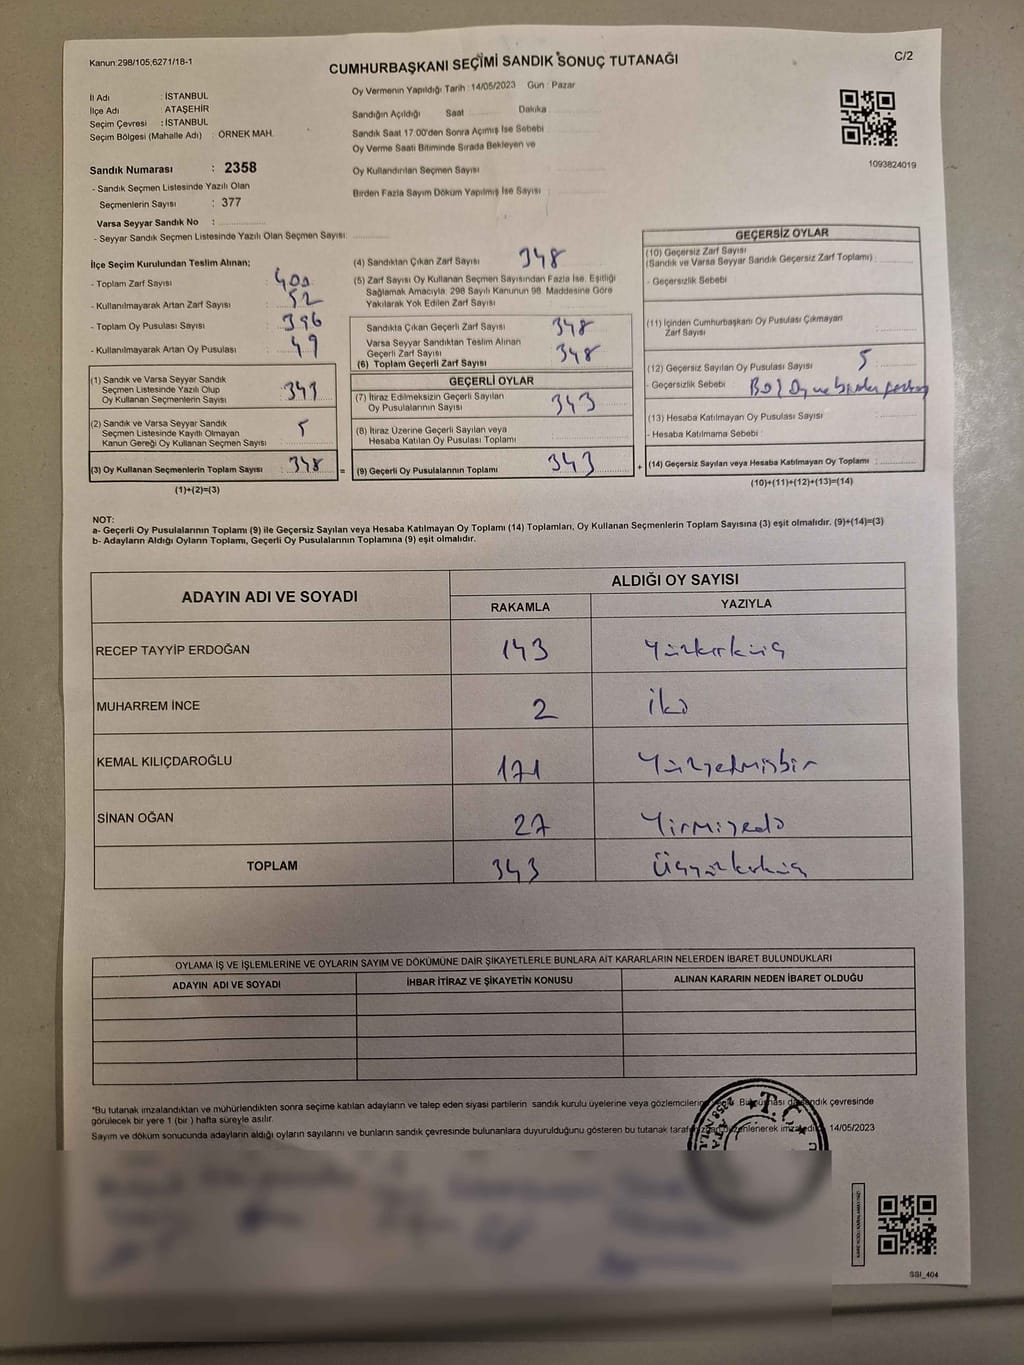 Kanun:298/105;6271/18-1
CUMHURBAŞKANI SEÇİMİ SANDIK SONUÇ TUTANAĞI
C/2
İl Adı : İSTANBUL
İlçe Adı : ATAŞEHİR
Seçim Çevresi : İSTANBUL
Seçim Bölgesi (Mahalle Adı) : ÖRNEK MAH.
Sandık Numarası : 2358
- Sandık Seçmen Listesinde Yazılı Olan
Seçmenlerin Sayısı : 377
Varsa Seyyar Sandık No :
- Seyyar Sandık Seçmen Listesinde Yazılı Olan Seçmen Sayısı:
Oy Vermenin Yapıldığı Tarih : 14/05/2023 Gün : Pazar
Sandığın Açıldığı Saat Dakika
Sandık Saat 17:00'den Sonra Açılmış İse Sebebi
Oy Verme Saati Bitiminde Sırada Bekleyen ve
Oy Kullandırılan Seçmen Sayısı
Birden Fazla Sayım Döküm Yapılmış İse Sayısı
1093824019
İlçe Seçim Kurulundan Teslim Alınan;
- Toplam Zarf Sayısı : 400
- Kullanılmayarak Artan Zarf Sayısı : 52
- Toplam Oy Pusulası Sayısı : 396
- Kullanılmayarak Artan Oy Pusulası : 49
(1) Sandık ve Varsa Seyyar Sandık
Seçmen Listesinde Yazılı Olup
Oy Kullanan Seçmenlerin Sayısı : 343
(2) Sandık ve Varsa Seyyar Sandık
Seçmen Listesinde Kayıtlı Olmayan
Kanun Gereği Oy Kullanan Seçmen Sayısı : 5
(3) Oy Kullanan Seçmenlerin Toplam Sayısı : 348
(1)+(2)=(3)
(4) Sandıktan Çıkan Zarf Sayısı 348
(5) Zarf Sayısı Oy Kullanan Seçmen Sayısından Fazla İse, Eşitliği
Sağlamak Amacıyla, 298 Sayılı Kanunun 98. Maddesine Göre
Yakılarak Yok Edilen Zarf Sayısı
Sandıkta Çıkan Geçerli Zarf Sayısı 348
Varsa Seyyar Sandıktan Teslim Alınan
Geçerli Zarf Sayısı
(6) Toplam Geçerli Zarf Sayısı 348
GEÇERLİ OYLAR
(7) İtiraz Edilmeksizin Geçerli Sayılan
Oy Pusulalarının Sayısı 343
(8) İtiraz Üzerine Geçerli Sayılan veya
Hesaba Katılan Oy Pusulası Toplamı
= (9) Geçerli Oy Pusulalarının Toplamı 343
GEÇERSİZ OYLAR
(10) Geçersiz Zarf Sayısı
(Sandık ve Varsa Seyyar Sandık Geçersiz Zarf Toplamı) :
- Geçersizlik Sebebi
(11) İçinden Cumhurbaşkanı Oy Pusulası Çıkmayan
Zarf Sayısı :
(12) Geçersiz Sayılan Oy Pusulası Sayısı 5
- Geçersizlik Sebebi Boş Oy ve birden
(13) Hesaba Katılmayan Oy Pusulası Sayısı :
- Hesaba Katılmama Sebebi :
+ (14) Geçersiz Sayılan veya Hesaba Katılmayan Oy Toplamı :
(10)+(11)+(12)+(13)=(14)
NOT:
a- Geçerli Oy Pusulalarının Toplamı (9) ile Geçersiz Sayılan veya Hesaba Katılmayan Oy Toplamı (14) Toplamları, Oy Kullanan Seçmenlerin Toplam Sayısına (3) eşit olmalıdır. (9)+(14)=(3)
b- Adayların Aldığı Oyların Toplamı, Geçerli Oy Pusulalarının Toplamına (9) eşit olmalıdır.
ADAYIN ADI VE SOYADI
ALDIĞI OY SAYISI
RAKAMLA YAZIYLA
RECEP TAYYİP ERDOĞAN 143 Yüzkırküç
MUHARREM İNCE 2 iki
KEMAL KILIÇDAROĞLU 171 Yüzyetmişbir
SİNAN OĞAN 27 Yirmiyedi
TOPLAM 343 Üçyüzkırküç
OYLAMA İŞ VE İŞLEMLERİNE VE OYLARIN SAYIM VE DÖKÜMÜNE DAİR ŞİKAYETLERLE BUNLARA AİT KARARLARIN NELERDEN İBARET BULUNDUKLARI
ADAYIN ADI VE SOYADI İHBAR İTİRAZ VE ŞİKAYETİN KONUSU ALINAN KARARIN NEDEN İBARET OLDUĞU
*Bu tutanak imzalandıktan ve mühürlendikten sonra seçime katılan adayların ve talep eden siyasi partilerin sandık kurulu üyelerine veya gözlemcilerine sandık çevresinde
görülecek bir yere 1 (bir ) hafta süreyle asılır.
Sayım ve döküm sonucunda adayların aldığı oyların sayılarını ve bunların sandık çevresinde bulunanlara duyurulduğunu gösteren bu tutanak düzenlenerek 14/05/2023
T.C.
SSI_404